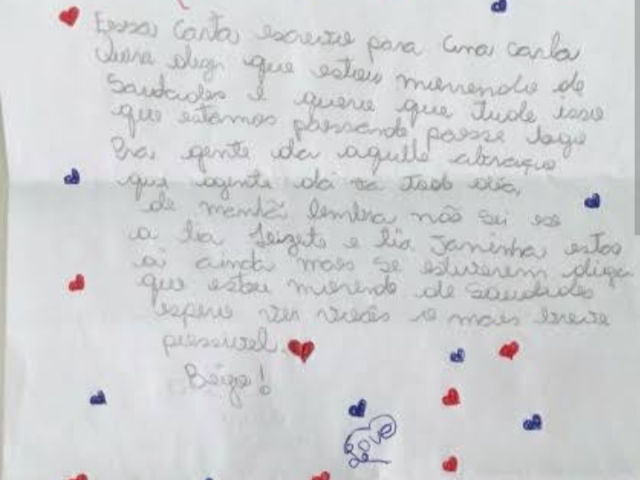 Essa carta escrevo para Ana Carla
quero dizer que estou morrendo de
Saudades e quero que tudo isso
que estamos passando passe logo
Pra gente da aquele abraço
que agente dá todo dia,
de manhã lembra não sei se
a tia Leizete e tia Janinha estão
ai ainda mais se estiverem diga
que estou morendo de Saudades
espero ver vocês o mais breve
possivel.
Beijo!
Love